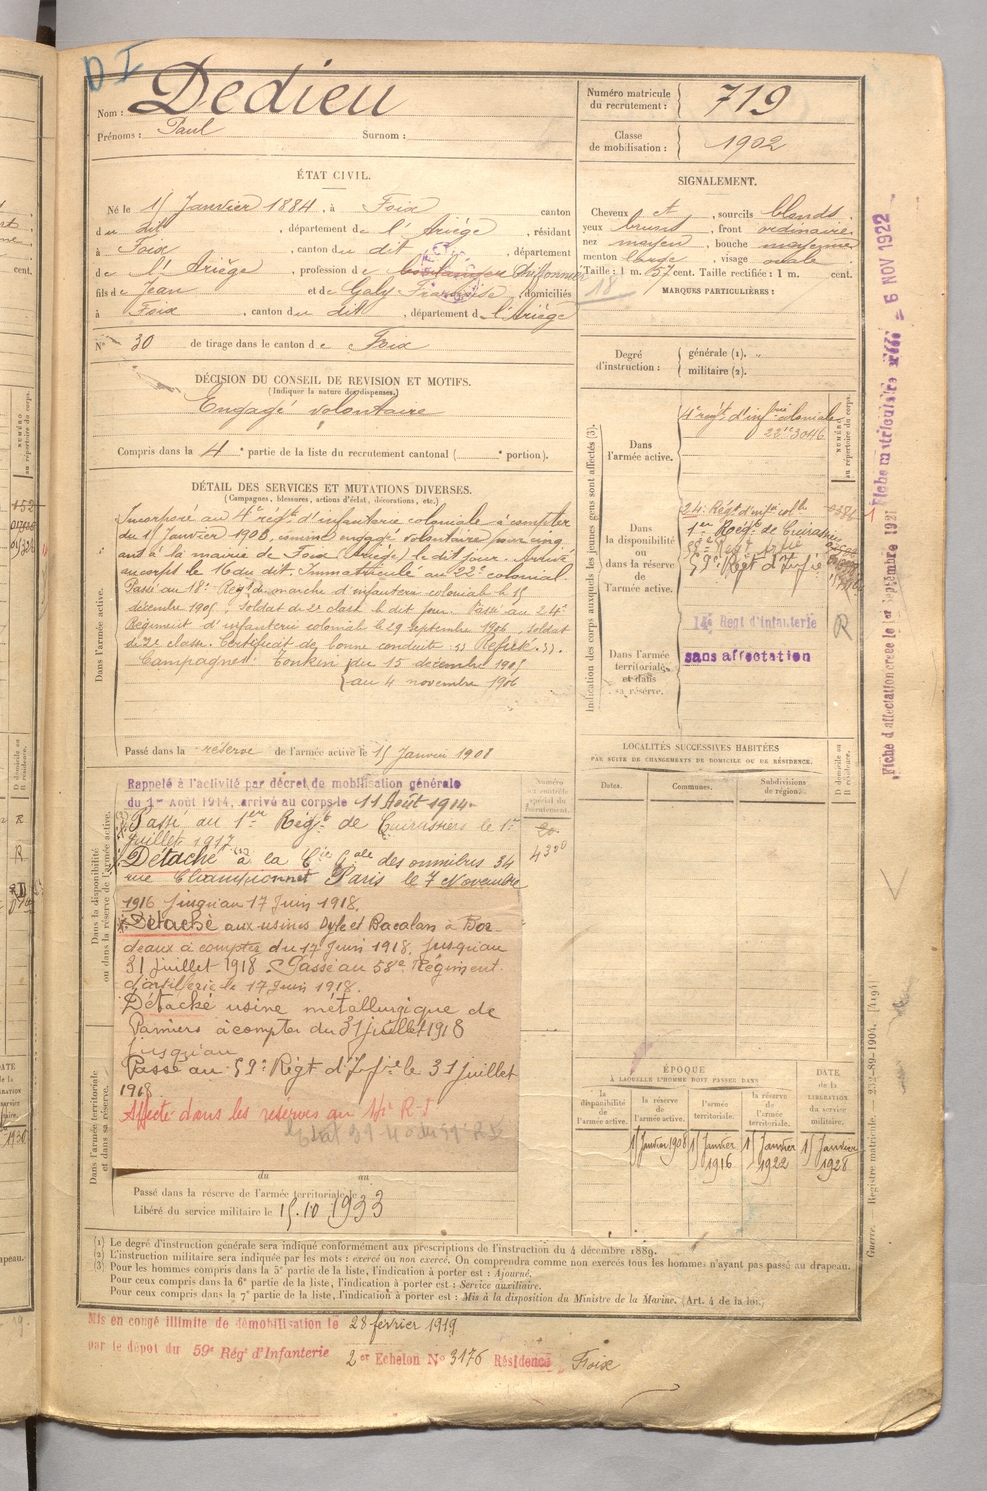 D I
Nom : Dedieu
Prénoms : Paul Surnom :
Numéro matricule
du recrutement : 719
Classe
de mobilisation : 1902
ÉTAT CIVIL.
Né le 15 Janvier 1884, à Foix canton
du dit, département de l'Ariège, résidant
à Foix, canton du dit, département
de l'Ariège, profession de boulanger
fils de Jean et de Galy Françoise, domiciliés
à Foix, canton du dit, département de l'Ariège
N° 30 de tirage dans le canton de Foix
SIGNALEMENT.
Cheveux et, sourcils blonds
yeux bruns, front ordinaire
nez moyen, bouche moyenne
menton large, visage ovale
Taille : 1 m. 57 cent. Taille rectifiée : 1 m. cent.
18
MARQUES PARTICULIÈRES :
Degré
d'instruction :
générale (1). "
militaire (2).
DÉCISION DU CONSEIL DE REVISION ET MOTIFS.
(Indiquer la nature des dispenses.)
Engagé volontaire
Compris dans la 4e partie de la liste du recrutement cantonal ( e portion).
DÉTAIL DES SERVICES ET MUTATIONS DIVERSES.
(Campagnes, blessures, actions d'éclat, décorations, etc.)
Dans l'armée active.
Incorporé au 4e régt d'infanterie coloniale à compter
du 15 Janvier 1903, comme engagé volontaire pour cinq
ans à la mairie de Foix (Ariège) le dit jour. Arrivé
au corps le 16 du dit. Immatriculé au 22e colonial.
Passé au 18e Régt de marche d'infanterie coloniale le 15
décembre 1905, soldat de 2e classe le dit jour. Passé au 24e
Régiment d'infanterie coloniale le 29 septembre 1906, soldat
de 2e classe. Certificat de bonne conduite : "Refusé".
Campagnes : Tonkin du 15 décembre 1905
au 4 novembre 1906
Passé dans la réserve de l'armée active le 15 Janvier 1908
Indication des corps auxquels les jeunes gens sont affectés (3).
Dans
l'armée active.
4e régt d'infrie coloniale
22e 3046
NUMÉRO
au répertoire du corps.
Dans
la disponibilité
ou
dans la réserve
de
l'armée active.
24e Régt d'infie colle
1er Régt de Cuirassiers
59e Régt d'Infie
14e Regt d'infanterie
R
Dans l'armée
territoriale
et dans
sa réserve.
sans affectation
LOCALITÉS SUCCESSIVES HABITÉES
PAR SUITE DE CHANGEMENTS DE DOMICILE OU DE RÉSIDENCE.
Dates. Communes. Subdivisions
de région.
D domicile ou
R résidence.
Dans la disponibilité
ou dans la réserve de l'armée active.
Rappelé à l'activité par décret de mobilisation générale
du 1er Août 1914, arrivé au corps le 11 Août 1914
Passé au 1er Régt de Cuirassiers le 1er
Juillet 1917
Détaché à la Cie Gale des omnibus 34
rue Championnet Paris le 7 Novembre
1916 jusqu'au 17 Juin 1918.
Détaché aux usines Dyle et Bacalan à Bor-
deaux à compter du 17 Juin 1918, jusqu'au
31 Juillet 1918. Passé au 58e Régiment
d'artillerie le 17 Juin 1918.
Détaché usine métallurgique de
Pamiers à compter du 31 juillet 1918
jusqu'au
Passé au 59e Régt d'Infie le 31 Juillet
1918
Affecté dans les réserves au 14e R.I
Numéro
au contrôle
spécial du
recrutement.
Dans l'armée territoriale
et dans sa réserve.
du au
Passé dans la réserve de l'armée territoriale le
Libéré du service militaire le 15.10.1933
ÉPOQUE
À LAQUELLE L'HOMME DOIT PASSER DANS
DATE
de la
LIBÉRATION
du service
militaire.
la
disponibilité
de
l'armée active.
la réserve
de
l'armée active.
l'armée
territoriale.
la réserve
de
l'armée
territoriale.
15 Janvier 1908
15 Janvier 1916
15 Janvier 1922
15 Janvier 1928
(1) Le degré d'instruction générale sera indiqué conformément aux prescriptions de l'instruction du 4 décembre 1889.
(2) L'instruction militaire sera indiquée par les mots : exercé ou non exercé. On comprendra comme non exercés tous les hommes n'ayant pas passé au drapeau.
(3) Pour les hommes compris dans la 5e partie de la liste, l'indication à porter est : Ajourné.
Pour ceux compris dans la 6e partie de la liste, l'indication à porter est : Service auxiliaire.
Pour ceux compris dans la 7e partie de la liste, l'indication à porter est : Mis à la disposition du Ministre de la Marine. (Art. 4 de la loi.)
Mis en congé illimité de démobilisation le 28 février 1919
par le dépôt du 59e Régt d'Infanterie 2er Echelon No 3176 Résidence Foix
Fiche d'affectation créée le 1er Septembre 1921 Fiche matriculaire 6 NOV 1922
Guerre. — Registre matricule. — 232-89-1904. [4194]